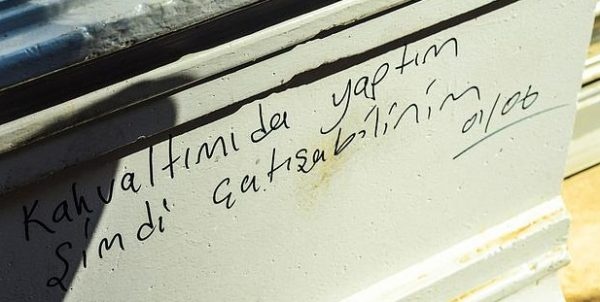 Kahvaltımıda yaptım
Şimdi çatışabilinim
01/06